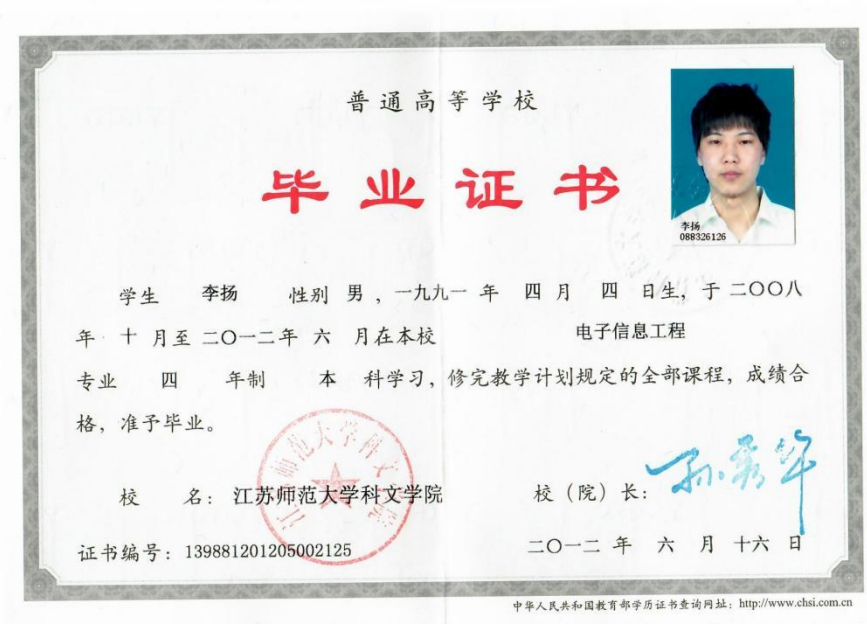 普通高等学校
毕业证书
李扬
088326126
学生 李扬 性别 男 ，一九九一 年 四 月 四 日生，于 二〇〇八
年 十 月至 二〇一二 年 六 月在本校 电子信息工程
专业 四 年制 本 科学习，修完教学计划规定的全部课程，成绩合
格，准予毕业。
江苏师范大学科文学院
校 名：江苏师范大学科文学院 校（院）长：孙秀华
证书编号：139881201205002125 二〇一二 年 六 月 十六 日
中华人民共和国教育部学历证书查询网址：http://www.chsi.com.cn